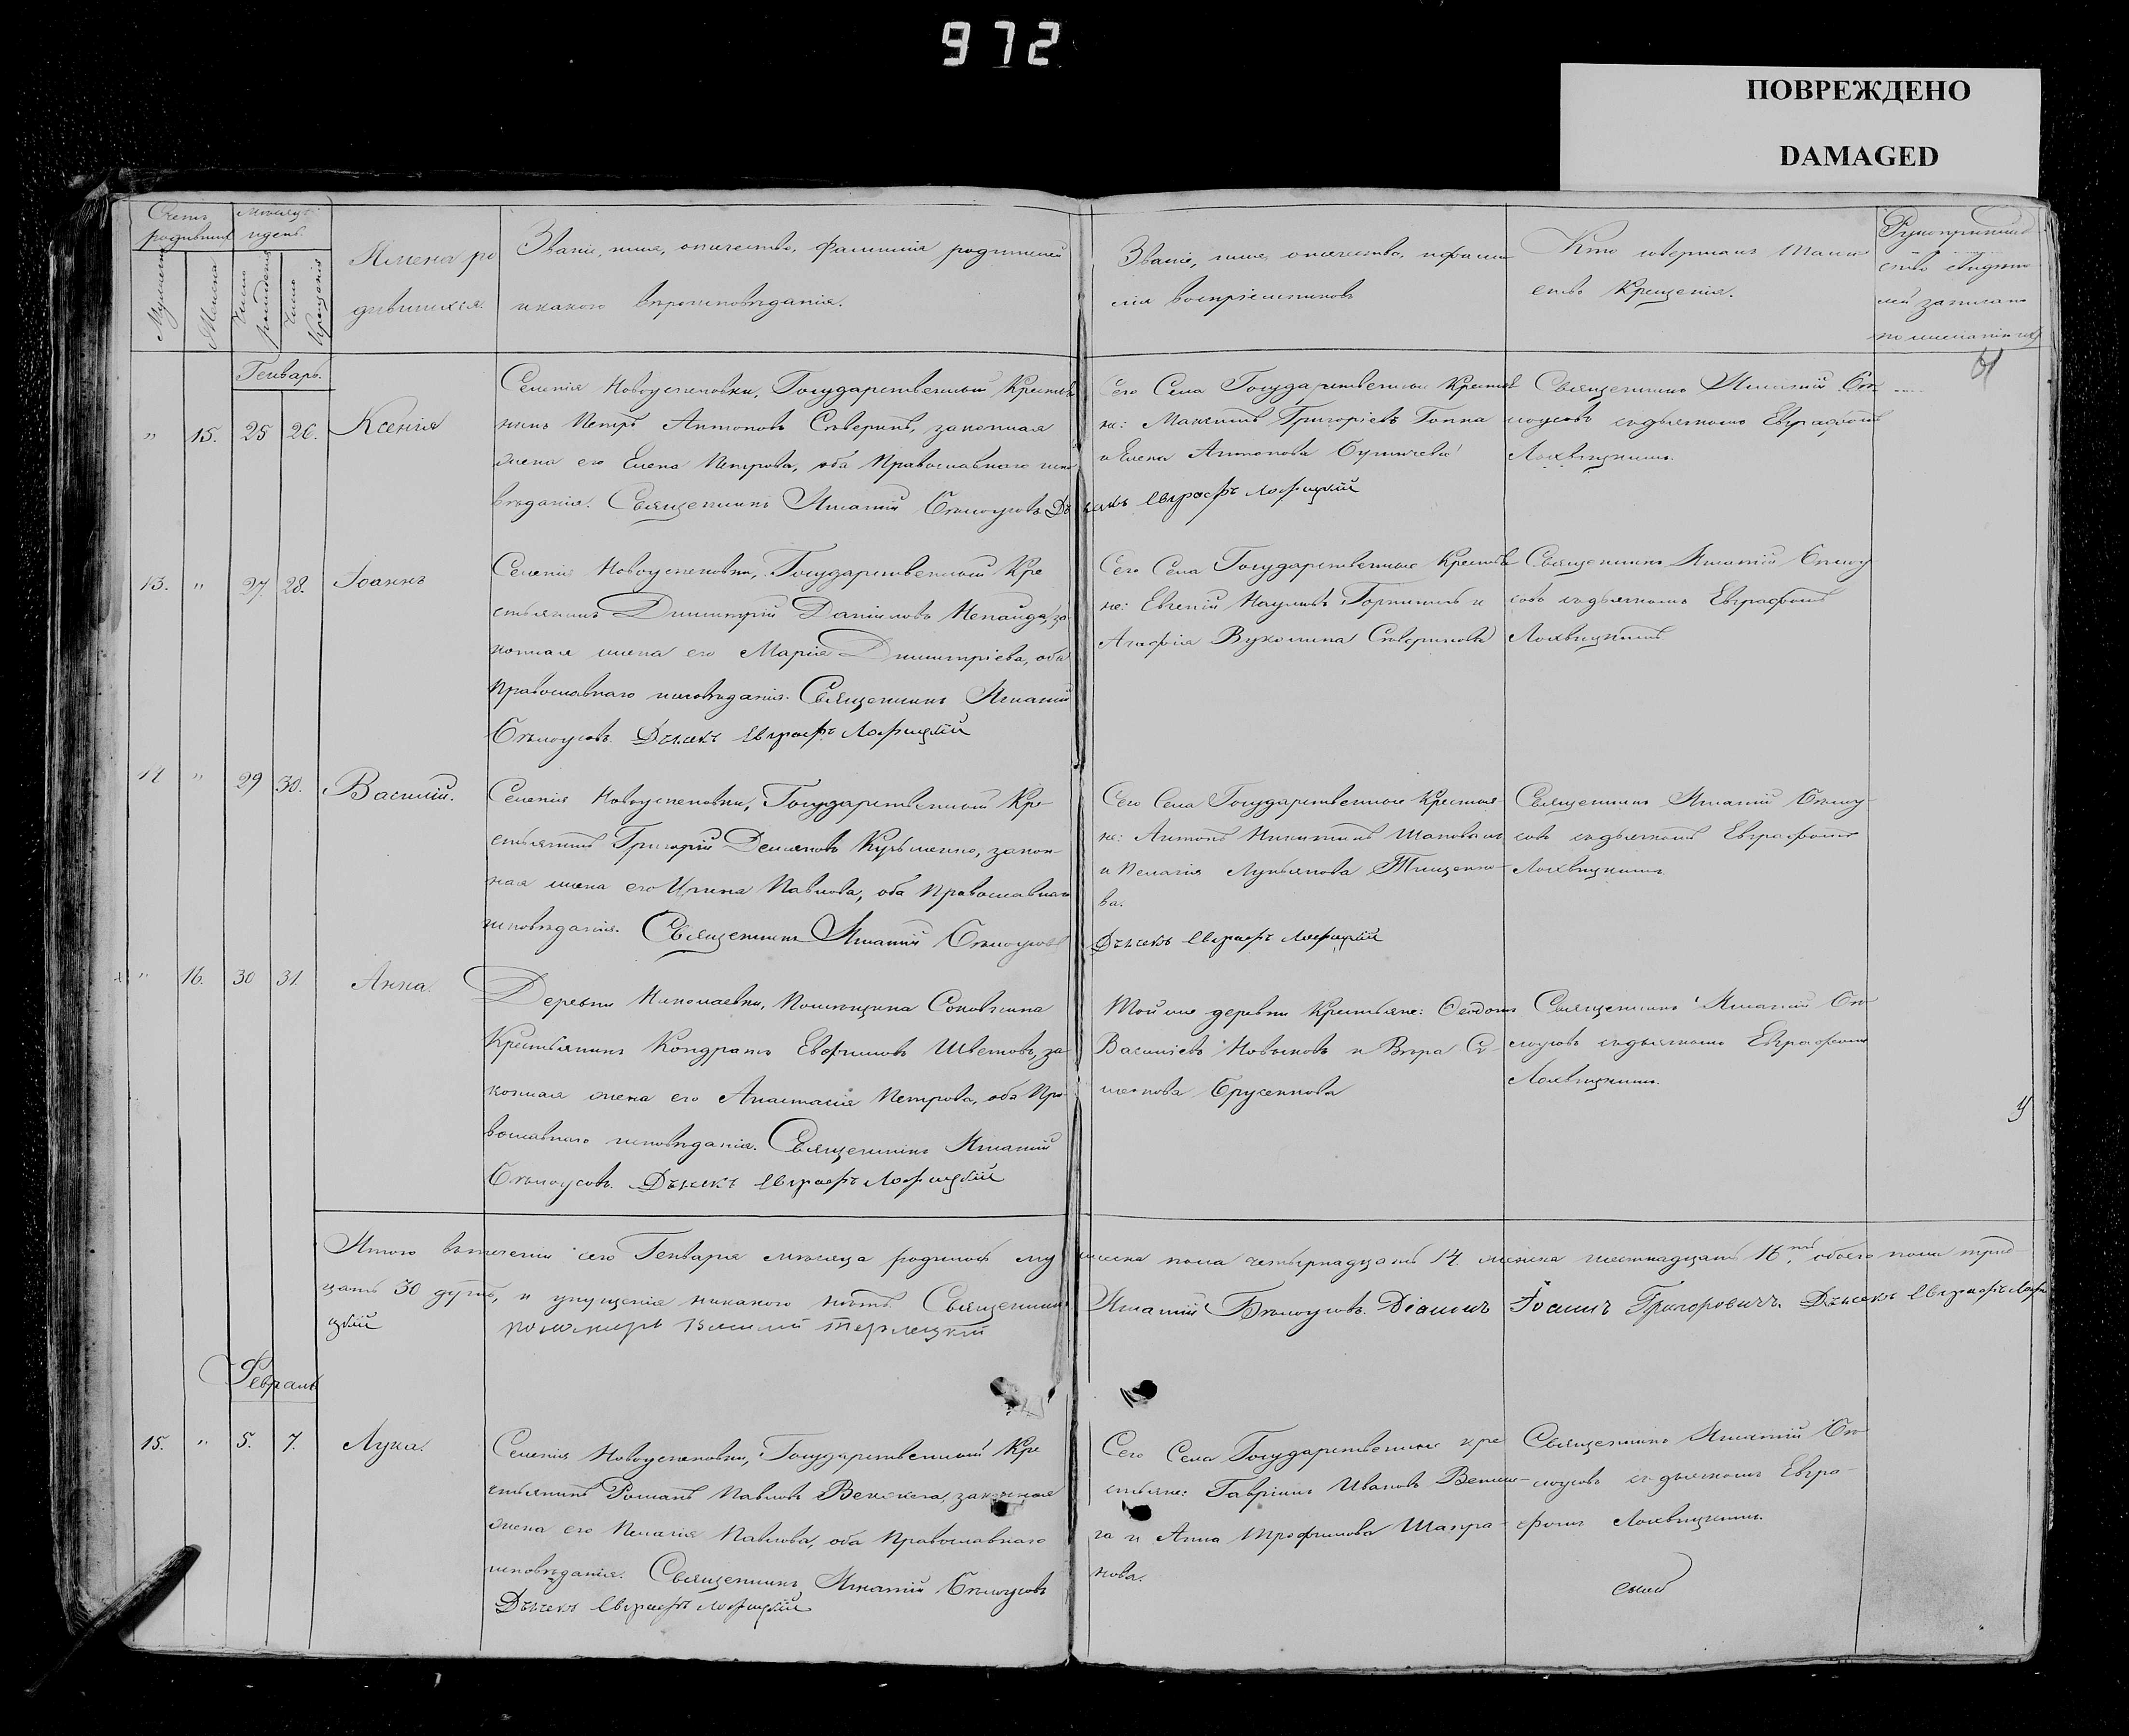 972
ПОВРЕЖДЕНО
DAMAGED
Счетъ родившихся
Мѣсяцъ и день
Мужеска
Женска
Число рожденія
Число Крещенія
Имена родившихся.
Званіе, имя, отчество, фамилія родителей
и какого вѣроисповѣданія.
Званіе, имя, отчество, и фамилія воспріемниковъ
Кто совершалъ таинство Крещенія.
Рукоприкладство свидѣтелей записано по желанію
Генварь.
" 15. 25 26. Ксенія
Селенія Новоуспеновки, Государственный Крестья
нинъ Петръ Антоновъ Сѣверинъ, законная
жена его Елена Петрова, оба Православнаго испо
вѣданія. Священникъ Игнатій Бѣлоусовъ. Дьячекъ Евграфъ Лохвицкій
Сего Села Государственные Крестья
не: Максимъ Григоріевъ Гоппа
и Елена Антонова
Священникъ Игнатій Бѣ
лоусовъ съ дьячкомъ Евграфомъ
Лохвицкимъ.
13. " 27. 28. Іоаннъ
Селенія Новоуспеновки, Государственный Кре
стьянинъ Димитрій Даніиловъ Непайда, за
конная жена его Марія Димитріева, оба
Православнаго исповѣданія. Священникъ Игнатій
Бѣлоусовъ. Дьячекъ Евграфъ Лохвицкій
Сего Села Государственные Крестья
не: Евгеній Наумовъ и
Агафія Вуколина Сѣверинова
Священникъ Игнатій Бѣлоу
совъ съ дьячкомъ Евграфомъ
Лохвицкимъ
14 " 29 30. Василій.
Селенія Новоуспеновки, Государственный Кре-
стьянинъ Григорій Демьяновъ Кузьменко, закон-
ная жена его Ирина Павлова, оба Православнаго
исповѣданія. Священникъ Игнатій Бѣлоусовъ
Сего Села Государственные Крестья-
не: Антонъ Никитинъ Шаповалъ
и Пелагія Лукьянова Тищенко-
ва.
Дьячекъ Евграфъ Лохвицкій
Священникъ Игнатій Бѣлоу-
совъ съ дьячкомъ Евграфомъ
Лохвицкимъ
" 16. 30 31. Анна.
Деревни Николаевки, Помѣщика
Крестьянинъ Кондратъ Евфимовъ Шветовъ, за-
конная жена его Анастасія Петрова, оба Пра-
вославнаго исповѣданія. Священникъ Игнатій
Бѣлоусовъ. Дьячекъ Евграфъ Лохвицкій
Той же деревни Крестьяне: Ѳеодотъ
Васильевъ Новиковъ и Вѣра Се-
менова
Священникъ Игнатій Бѣ
лоусовъ съ дьячкомъ Евграфомъ
Лохвицкимъ.
Итого въ теченіи сего Генваря мѣсяца родилось мужеска пола четырнадцать 14. женска шестнадцать 16, обоего пола трид-
цать 30 душъ, и упущенія никакого нѣтъ. Священникъ Игнатій Бѣлоусовъ. Діаконъ Іоаннъ Григоровичъ. Дьячекъ Евграфъ Лохви
цкій пономарь Василій
Февраль
15. " 5. 7. Лука.
Селенія Новоуспеновки, Государственный Кре
стьянинъ Романъ Павловъ законная
жена его Пелагія Павлова, оба Православнаго
исповѣданія. Священникъ Игнатій Бѣлоусовъ
Дьячекъ Евграфъ Лохвицкій
Сего Села Государственные кре
стьяне: Гавріилъ Ивановъ
га и Анна Трофимова
нова.
Священникъ Игнатій Бѣ
лоусовъ съ дьячкомъ Евгра-
фомъ Лохвицкимъ.